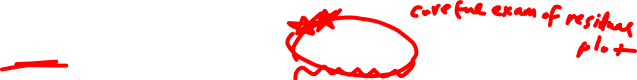 careful exam of residual
plot